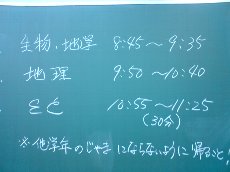 生物・地学 8:45～9:35
地理 9:50～10:40
を 10:55～11:25
(30分)
※他学年のじゃまにならないように帰ること!